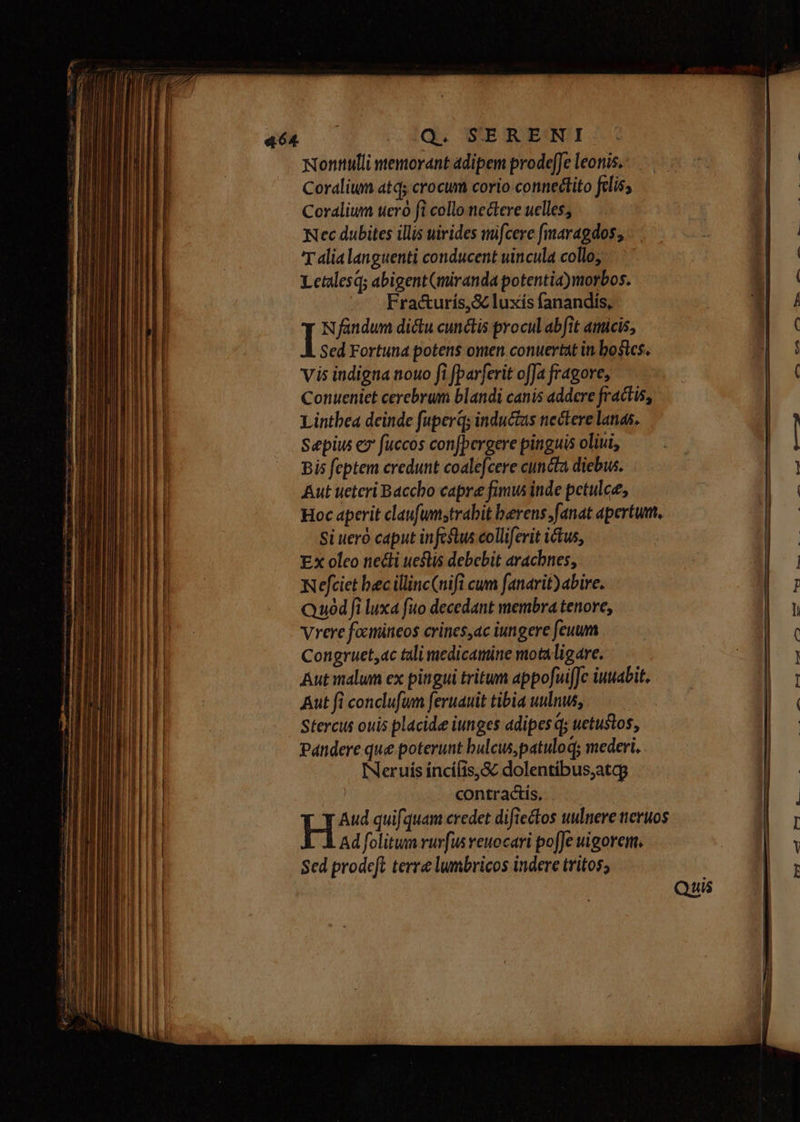 464 Q. SERENI
Nonnulli memorant adipem prodeſſe leonis.
Coralium atq; crocum corio connectito felis,
Coralium uerò ſi collo nectere uelles,
Nec dubites illis uirides miſcere ſmaragdos,
Talia languenti conducent uincula collo,
Letalesq; abigent (miranda potentia) morbos.
Fracturis, & luxis ſanandis.
INfandum dictu cunctis procul abſit amicis,
Sed Fortuna potens omen conuertat in hostes.
Vis indigna nouo ſi ſparſerit oſſa fragore,
Conueniet cerebrum blandi canis addere fractis,
Linthea deinde ſuperq; inductas nectere lanas.
Sæpius & ſuccos conſpergere pinguis oliui,
Bis ſeptem credunt coaleſcere cuncta diebus.
Aut ueteri Baccho capræ fimus inde petulcæ,
Hoc aperit clauſum, trahit hærens, ſanat apertum.
Si uerò caput infestus colliſerit ictus,
Ex oleo necti uestis debebit arachnes,
Neſciet hæc illinc (niſi cum ſanarit) abire.
Quòd ſi luxa ſuo decedant membra tenore,
Vrere fœmineos crines, ac iungere ſeuum
Congruet, ac tali medicamine mota ligare.
Aut malum ex pingui tritum appoſuiſſe iuuabit.
Aut ſi concluſum ſeruauit tibia uulnus,
Stercus ouis placidæ iunges adipesq; uetustos,
Pandere quæ poterunt hulcus, patuloq; mederi.
Neruis inciſis, & dolentibus, atq;
contractis.
HAud quiſquam credet diſiectos uulnere neruos
Ad ſolitum rurſus reuocari poſſe uigorem.
Sed prodeſt terræ lumbricos indere tritos,
Quis